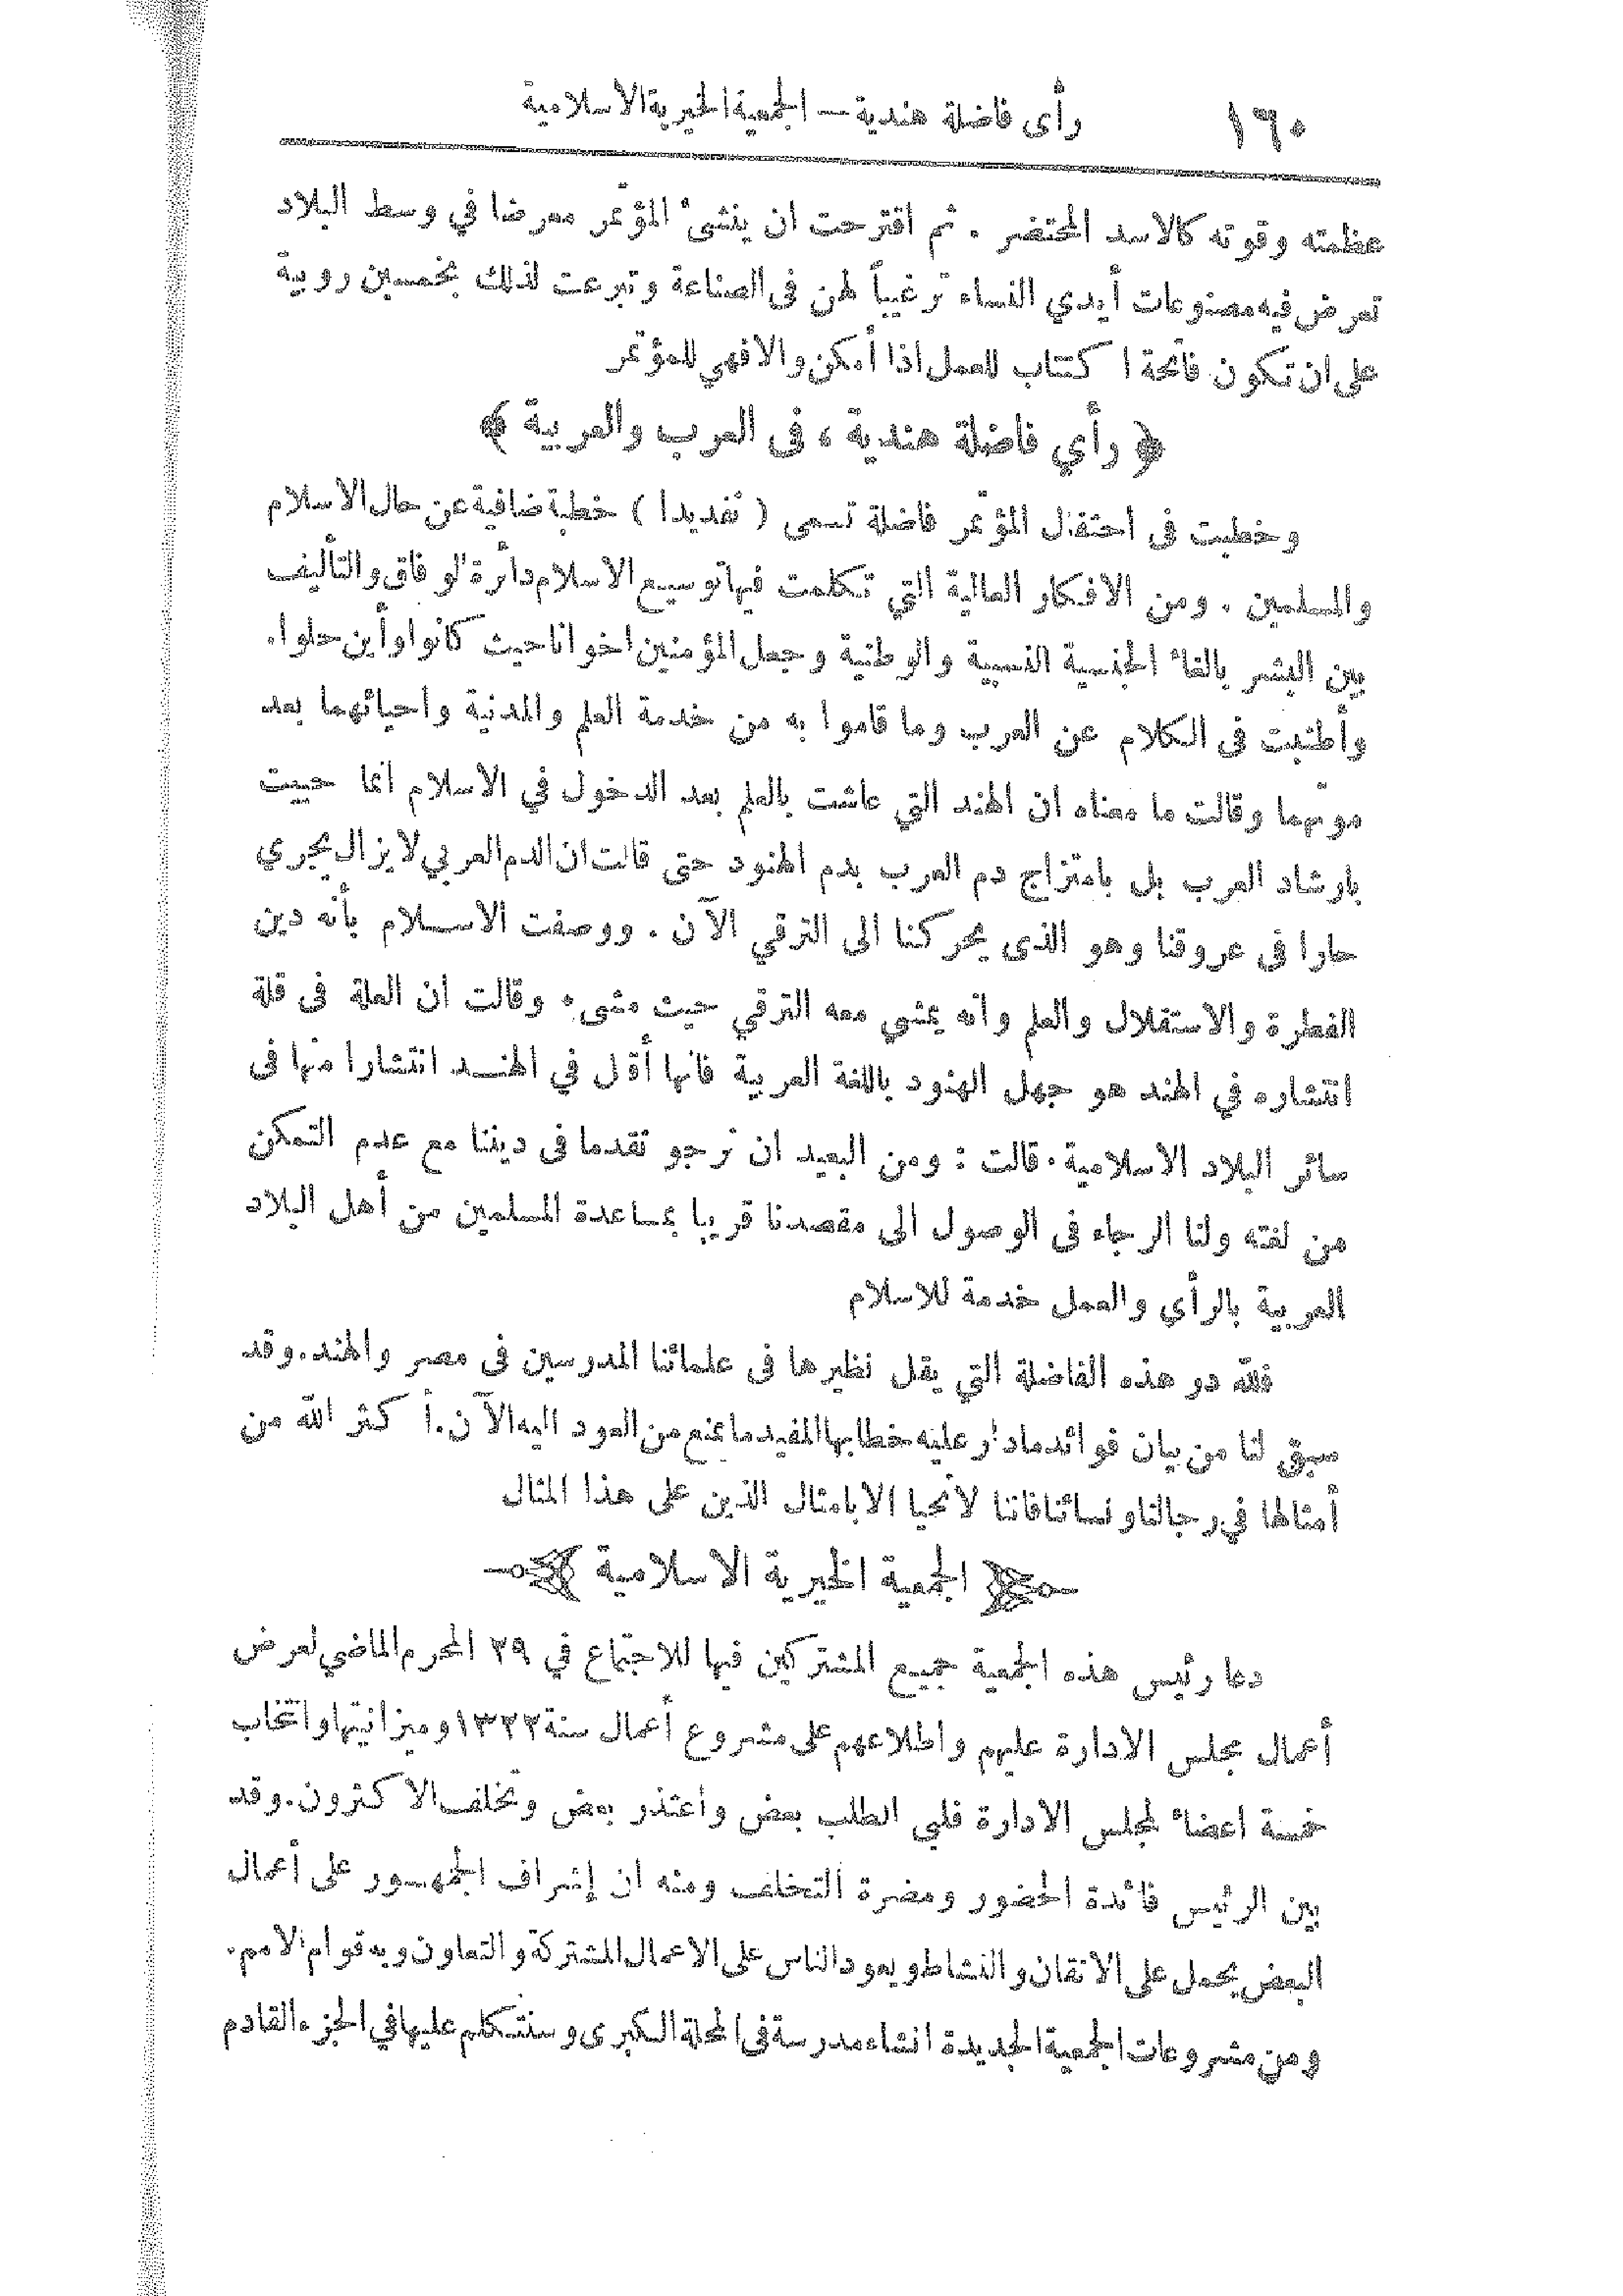 ١٦٠ رأى فاضلة هندية — الجمعية الخيرية الاسلامية
عظمته وقوته كالاسد المحتضر . ثم اقترحت ان ينشىء المؤتمر معرضا في وسط البلاد
تعرض فيه مصنوعات أيدي النساء ترغيباً لهن فى الصناعة وتبرعت لذلك بخمسين روبية
على ان تكون فاتحة اكتتاب للعمل اذا أمكن والا فهي للمؤتمر
﴿ رأي فاضلة هندية ، فى العرب والعربية ﴾
وخطبت فى احتفال المؤتمر فاضلة تسمى ( نفديدا ) خطبة ضافية عن حال الاسلام
والمسلمين . ومن الافكار العالية التي تكلمت فيها توسيع الاسلام دائرة الوفاق والتأليف
بين البشر بالغاء الجنسية النسبية والوطنية وجعل المؤمنين اخوانا حيث كانوا وأين حلوا.
وأطنبت فى الكلام عن العرب وما قاموا به من خدمة العلم والمدنية واحيائهما بعد
موتهما وقالت ما معناه ان الهند التي عاشت بالعلم بعد الدخول في الاسلام انما حييت
بارشاد العرب بل بامتزاج دم العرب بدم الهنود حتى قالت ان الدم العربي لا يزال يجري
حارا فى عروقنا وهو الذى يحركنا الى الترقي الآن . ووصفت الاسلام بأنه دين
الفطرة والاستقلال والعلم وانه يمشي معه الترقي حيث مشى. وقالت ان العلة فى قلة
انتشاره في الهند هو جهل الهنود باللغة العربية فانها أقل في الهند انتشارا منها فى
سائر البلاد الاسلامية . قالت : ومن البعيد ان نرجو تقدما فى ديننا مع عدم التمكن
من لغته ولنا الرجاء فى الوصول الى مقصدنا قريبا بمساعدة المسلمين من أهل البلاد
العربية بالرأي والعمل خدمة للاسلام
فلله در هذه الفاضلة التي يقل نظيرها فى علمائنا المدرسين فى مصر والهند . وقد
سبق لنا من بيان فوائد مادار عليه خطابها المفيد ما يمنع من العود اليه الآن . أكثر الله من
أمثالها في رجالنا ونسائنا فاننا لا نحيا الا بامثال الذين على هذا المثال
الجمعية الخيرية الاسلامية
دعا رئيس هذه الجمعية جميع المشتركين فيها للاجتماع في ٢٩ المحرم الماضي لعرض
أعمال مجلس الادارة عليهم واطلاعهم على مشروع أعمال سنة ١٣٢٢ وميزانيتها وانتخاب
خمسة اعضاء لمجلس الادارة فلبى الطلب بعض واعتذر بعض وتخلف الاكثرون . وقد
بين الرئيس فائدة الحضور ومضرة التخلف ومنه ان إشراف الجمهور على أعمال
البعض يحمل على الاتقان والنشاط ويعود الناس على الاعمال المشتركة والتعاون وبه قوام الامم.
ومن مشروعات الجمعية الجديدة انشاء مدرسة فى المحلة الكبرى وسنتكلم عليها في الجزء القادم